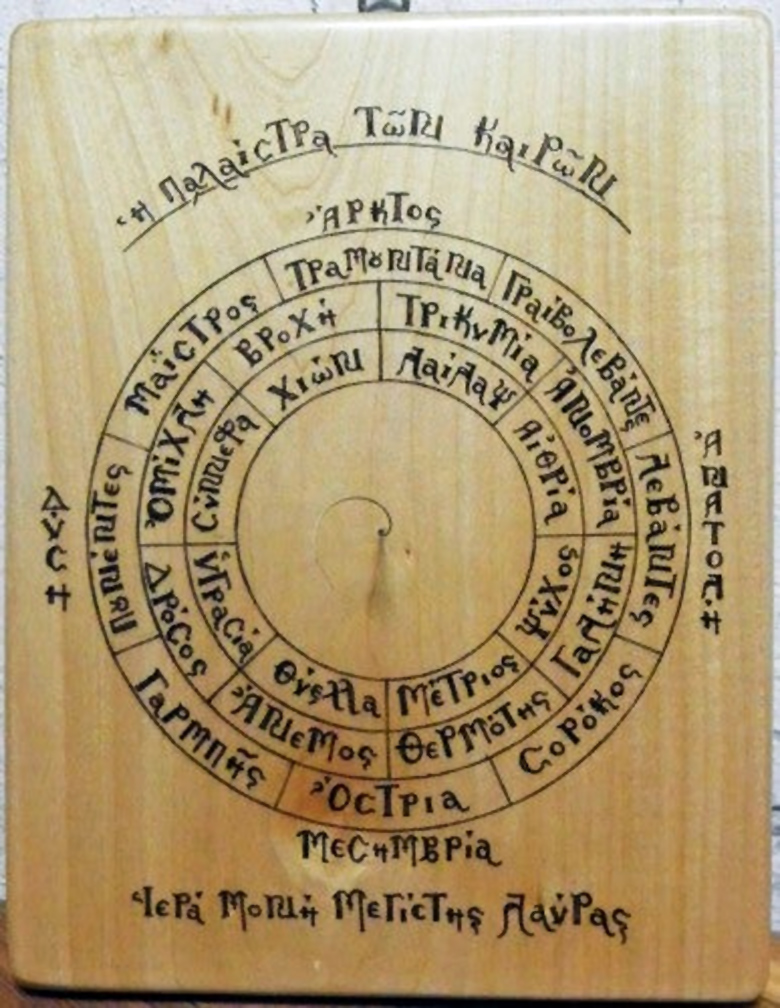 Ἡ Παλαίστρα Τῶν Καιρῶν
Ἄρκτος
Τραμουντάνα
Γραιβολεβάντες
Λεβάντες
Σορόκος
Ὄστρια
Γαρμπῆς
Πουνέντες
Μαΐστρος
Βροχή
Τρικυμία
Ἀνομβρία
Γαλήνη
Θερμότης
Ἄνεμος
Δρόσος
Ὁμίχλη
Χιών
Λαίλαψ
Αἰθρία
Ψύχος
Μέτριος
Θύελλα
Ὑγρασία
Σύννεφα
Ἀνατολή
Δύση
Μεσημβρία
Ἱερά Μονή Μεγίστης Λαύρας